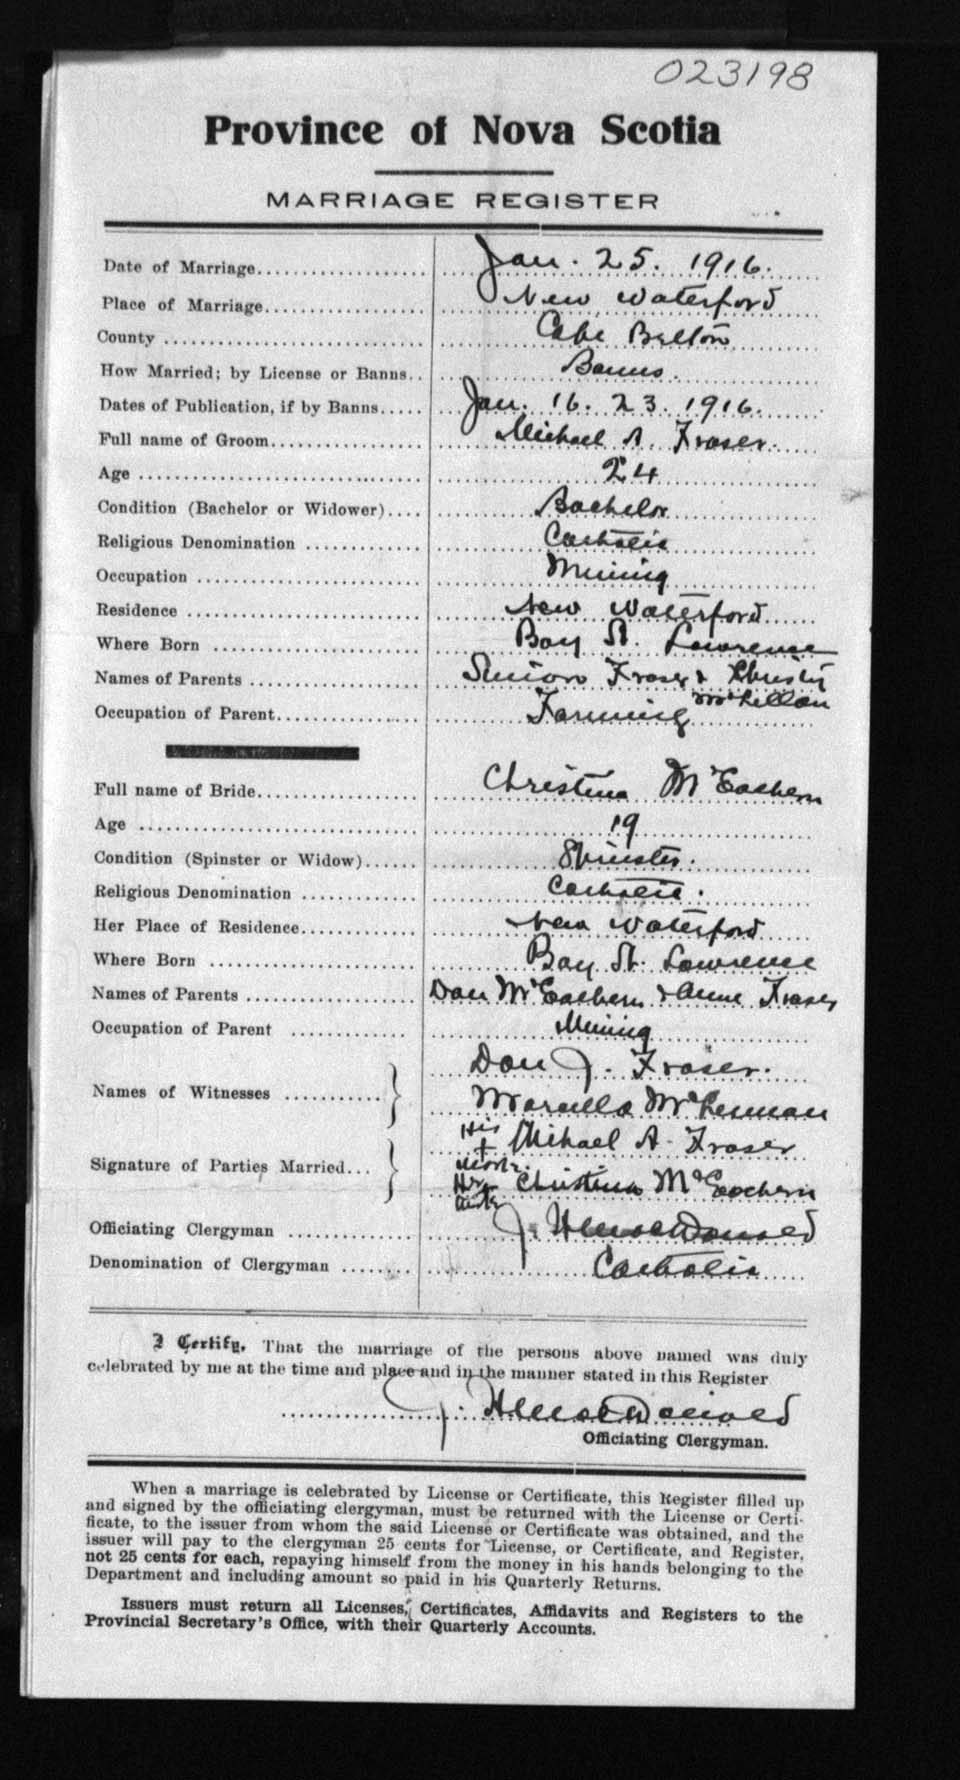 023198
Province of Nova Scotia
MARRIAGE REGISTER
Date of Marriage Jan. 25. 1916.
Place of Marriage New Waterford
County Cape Breton
How Married; by License or Banns Banns.
Dates of Publication, if by Banns Jan. 16. 23. 1916.
Full name of Groom Michael A. Fraser.
Age 24
Condition (Bachelor or Widower) Bachelor
Religious Denomination Catholic
Occupation Mining
Residence New Waterford
Where Born Bay St. Lawrence
Names of Parents Simon Fraser & Christy
McLellan
Occupation of Parent Farming
Full name of Bride Christina McEachern
Age 19
Condition (Spinster or Widow) Spinster.
Religious Denomination Catholic.
Her Place of Residence New Waterford
Where Born Bay St. Lawrence
Names of Parents Dan McEachern & Anne Fraser
Occupation of Parent Mining
Names of Witnesses Dan J. Fraser.
His
Signature of Parties Married + Michael A. Fraser
mark.
Her Christina McEachern
mark
Officiating Clergyman J.
Denomination of Clergyman Catholic
I Certify, That the marriage of the persons above named was duly
celebrated by me at the time and place and in the manner stated in this Register
J.
Officiating Clergyman.
When a marriage is celebrated by License or Certificate, this Register filled up
and signed by the officiating clergyman, must be returned with the License or Certi-
ficate, to the issuer from whom the said License or Certificate was obtained, and the
issuer will pay to the clergyman 25 cents for License, or Certificate, and Register,
not 25 cents for each, repaying himself from the money in his hands belonging to the
Department and including amount so paid in his Quarterly Returns.
Issuers must return all Licenses, Certificates, Affidavits and Registers to the
Provincial Secretary's Office, with their Quarterly Accounts.